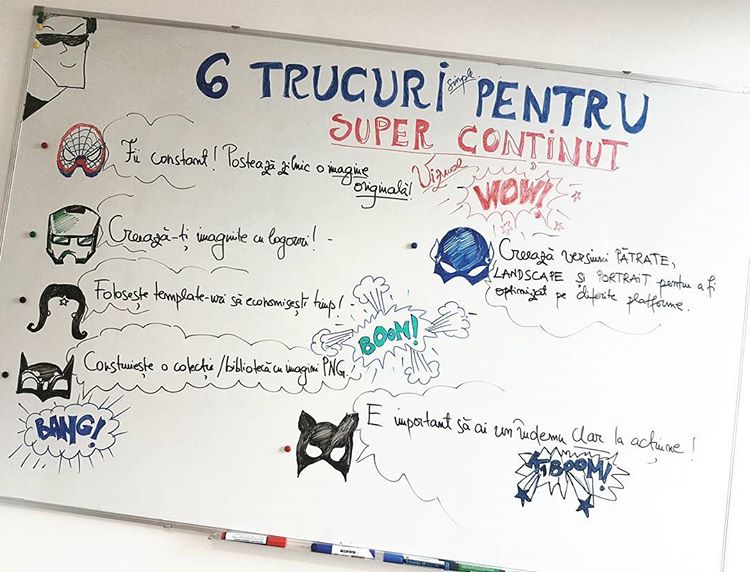 6 TRUCURI simple PENTRU
SUPER CONȚINUT
Vizual
Fii constant! Postează zilnic o imagine
originală!
WOW!
Creează-ți imaginile cu logouri! -
Creează versiuni PĂTRATE,
LANDSCAPE și PORTRAIT pentru a fi
optimizat pe diferite platforme.
Folosește template-uri să economisești timp!
BOOM!
Construiește o colecție/bibliotecă cu imagini PNG.
BANG!
E important să ai un îndemn clar la acțiune!
KABOOM!